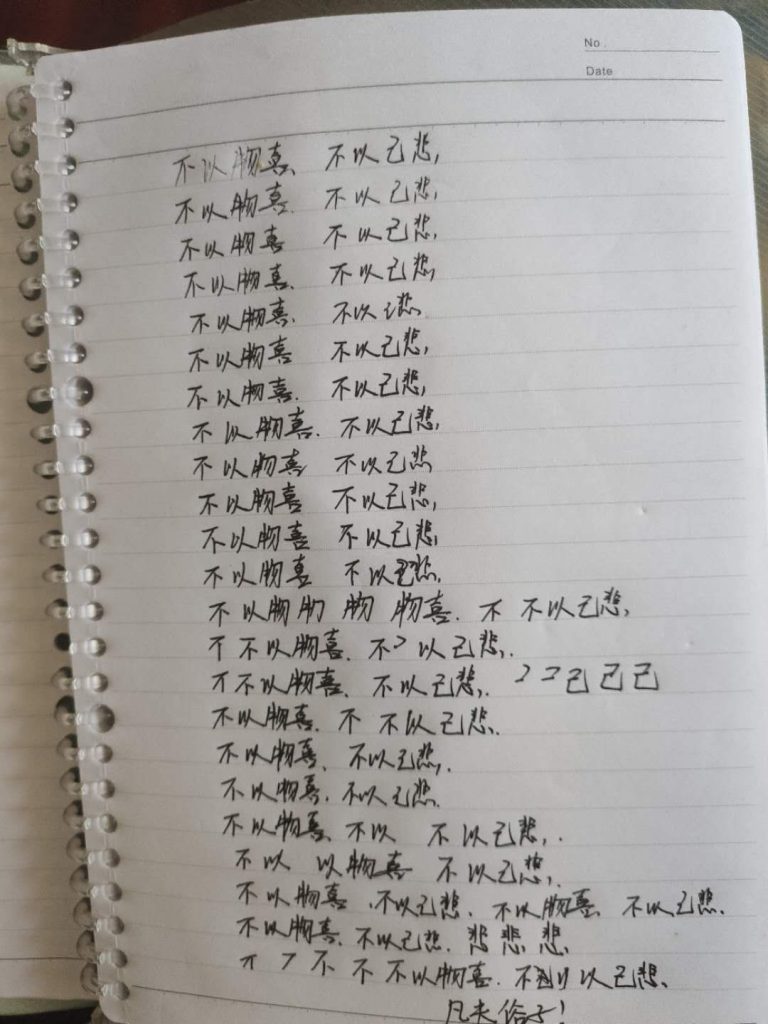 No
Date
不以物喜、不以己悲,
不以物喜. 不以己悲,
不以物喜 不以己悲,
不以物喜. 不以己悲,
不以物喜. 不以 悲.
不以物喜 不以己悲,
不以物喜. 不以己悲,
不以物喜. 不以己悲,
不以物喜 不以己悲
不以物喜 不以己悲,
不以物喜 不以己悲,
不以物喜 不以己悲.
不以物 物 物 物喜. 不 不以己悲,
不以物喜. 不 以己悲,.
不以物喜. 不以己悲,. 己 己 己
不以物喜. 不 不以己悲.
不以物喜. 不以己悲,.
不以物喜. 不以己悲.
不以物喜、不以 不以己悲,.
不以 以物喜 不以己悲,.
不以物喜 .不以己悲. 不以物喜、 不以己悲.
不以物喜. 不以己悲. 悲 悲 悲.
不 不 不以物喜. 不 以己悲、
凡夫俗子!